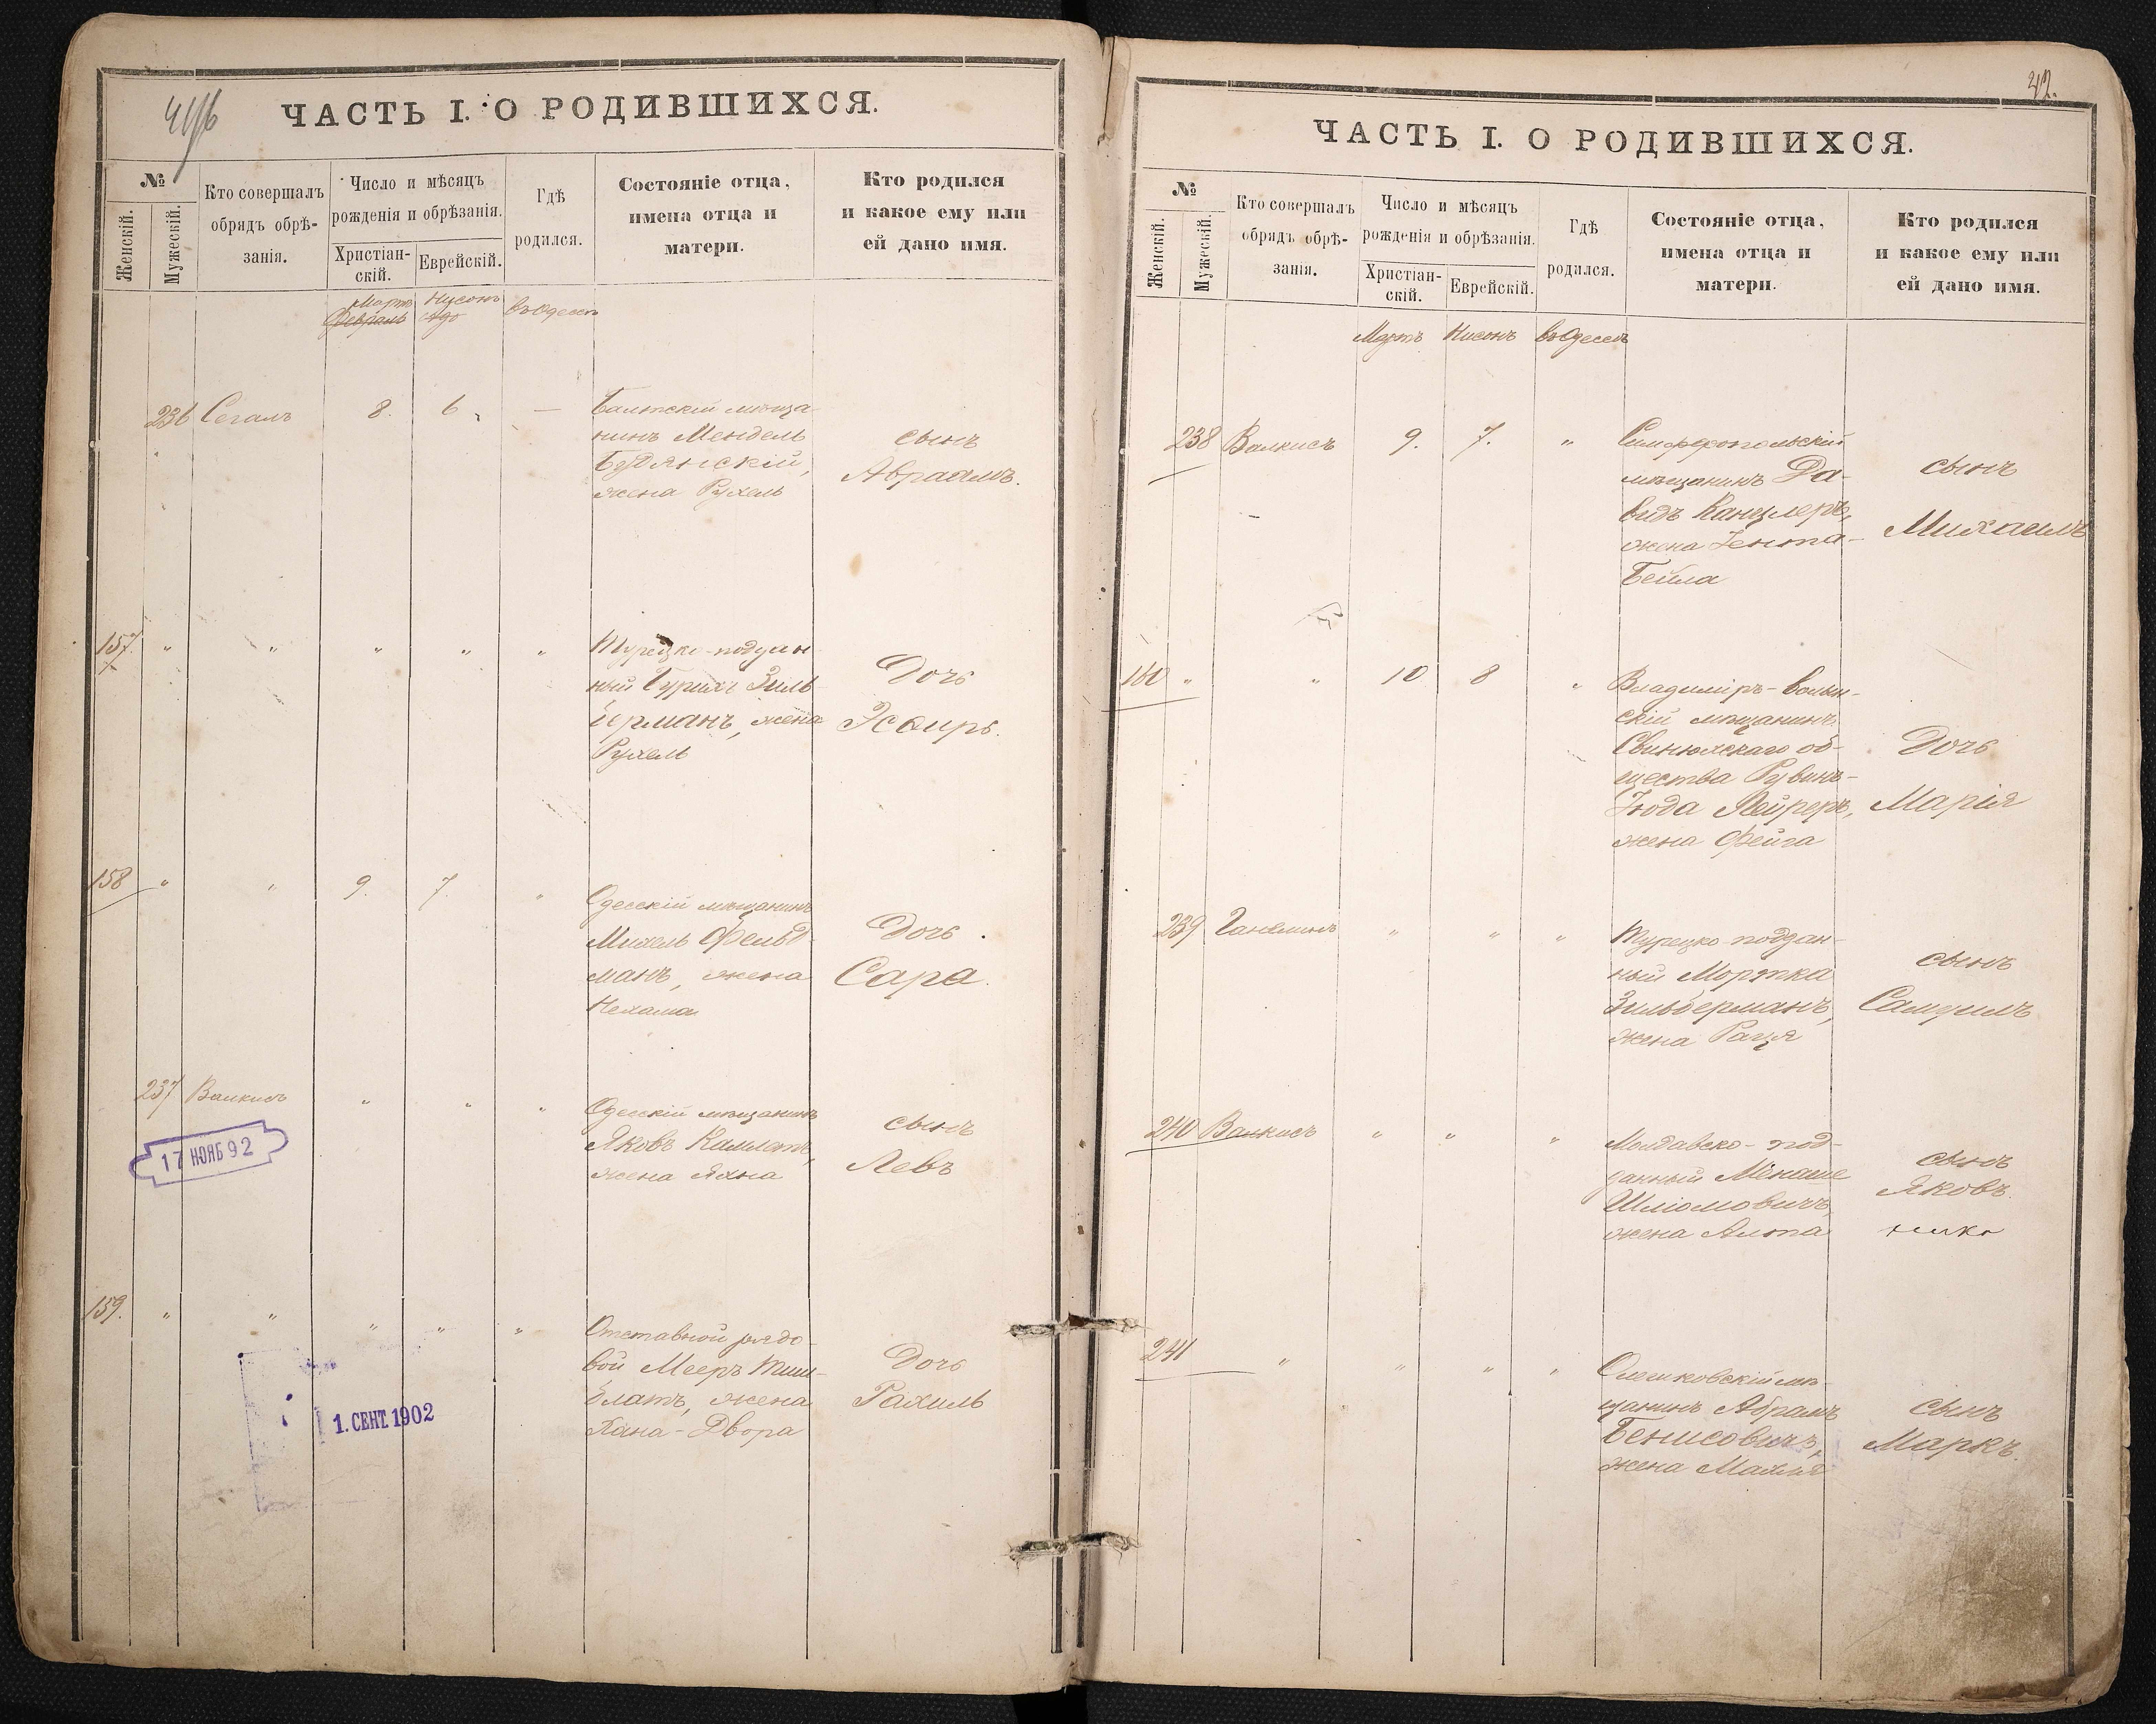 ЧАСТЬ I. О РОДИВШИХСЯ.
№
Женскій.
Мужескій.
Кто совершалъ
обрядъ обрѣ-
занія.
Число и мѣсяцъ
рожденія и обрѣзанія.
Христіан-
скій.
Еврейскій.
Гдѣ
родился.
Состояніе отца,
имена отца и
матери.
Кто родился
и какое ему или
ей дано имя.
Мартъ Нисонъ въ Одессѣ
Февраль
236 Сегалъ 8. 6 —
Балтскій мѣща-
нинъ Мендель
Будянскій,
жена Рухель
сынъ
Авраамъ.
157. " " " " "
Турецко-поддан-
ный Зиль-
берманъ, жена
Рухель
Дочь
Эсѳирь.
158 " " 9. 7. "
Одесскій мѣщанинъ
Михель Фельд-
манъ, жена
Нехама
Дочь
Сара.
237 Валкисъ " " "
17 НОЯБ 92
Одесскій мѣщанинъ
Яковъ
жена Яхна
сынъ
Левъ
159. " " " " "
1. СЕНТ. 1902
Отставной рядо-
вой Мееръ Тиш-
блатъ, жена
Хана-Двора
Дочь
Рахиль
42.
ЧАСТЬ I. О РОДИВШИХСЯ.
№
Женскій.
Мужескій.
Кто совершалъ
обрядъ обрѣ-
занія.
Число и мѣсяцъ
рожденія и обрѣзанія.
Христіан-
скій.
Еврейскій.
Гдѣ
родился.
Состояніе отца,
имена отца и
матери.
Кто родился
и какое ему или
ей дано имя.
Мартъ Нисонъ въ Одессѣ
238 Валкисъ 9. 7. "
Симферопольскій
мѣщанинъ Да-
видъ Канцлеръ,
жена Гента-
Бейла
сынъ
Михаилъ
160 " " 10 8 "
Владиміръ-волын-
скій мѣщанинъ
Свинюхскаго об-
щества Рувинъ-
Іюда
жена Фейга
Дочь
Марія
239 " " "
Турецко поддан-
ный Мортка
Зильберманъ,
жена Рація
сынъ
Самуилъ
240 Валкисъ " " "
Молдавско-под-
данный Менаше
Шліомовичъ,
жена Алта
сынъ
Яковъ.
241 " " " "
мѣ-
щанинъ Абрамъ
Бенисовичъ,
жена Махля
сынъ
Маркъ.